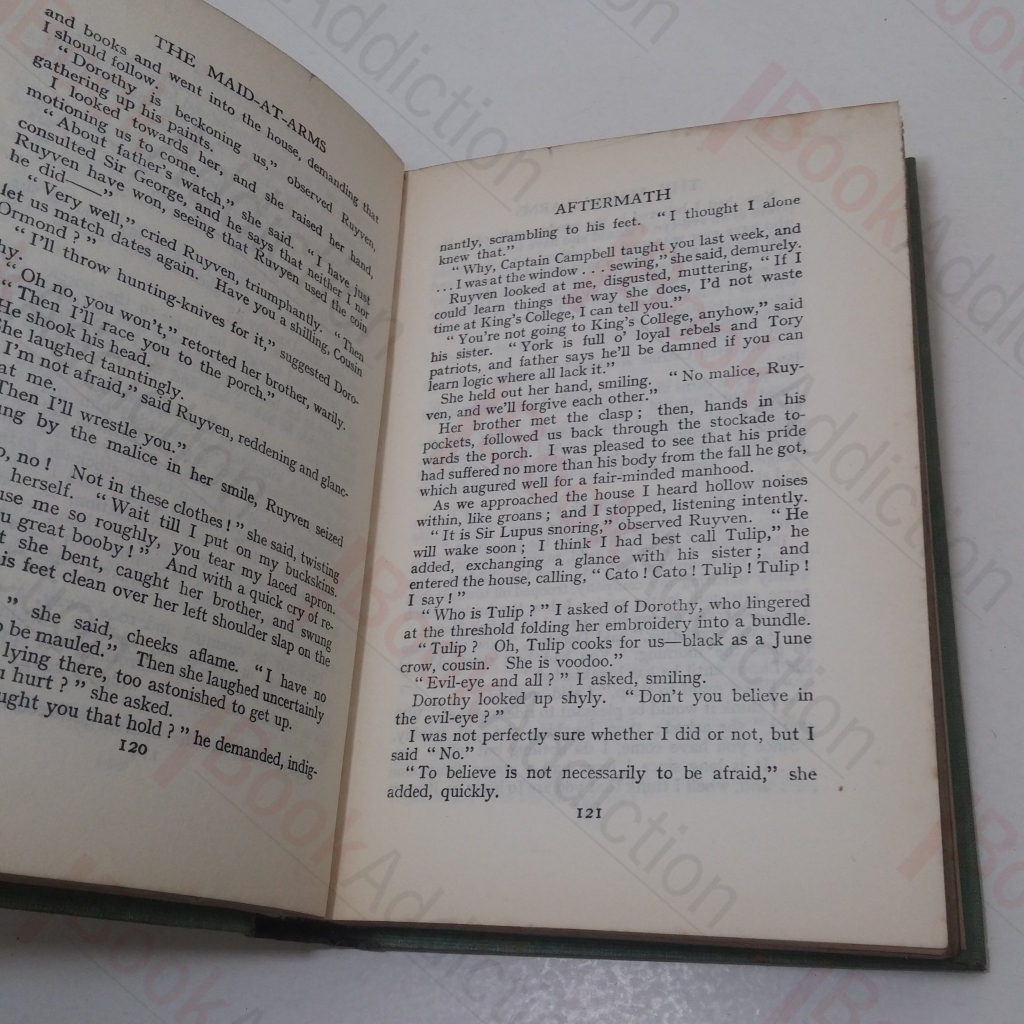 THE MAID-AT-ARMS
and books and went into the house, demanding that
I should follow.
“Dorothy is beckoning us,” observed Ruyven,
gathering up his paints.
I looked towards her, and she raised her hand,
motioning us to come.
“About father's watch,” she said. “I have just
consulted Sir George, and he says that neither I nor
Ruyven have won, seeing that Ruvyen used the coin
he did——”
“Very well,” cried Ruyven, triumphantly. “Then
let us match dates again. Have you a shilling, Cousin
Ormond?”
“I'll throw hunting-knives for it,” suggested Doro-
hy.
“Oh no, you won't,” retorted her brother, warily.
“Then I'll race you to the porch.”
He shook his head.
she laughed tauntingly.
I'm not afraid,” said Ruyven, reddening and glanc-
at me.
Then I'll wrestle you.”
ung by the malice in her smile, Ruyven seized
o, no! Not in these clothes!” she said, twisting
herself. “Wait till I put on my buckskins.
use me so roughly, you tear my laced apron.
u great booby!” And with a quick cry of re-
t she bent, caught her brother, and swung
is feet clean over her left shoulder slap on the
,” she said, cheeks aflame. “I have no
o be mauled.” Then she laughed uncertainly
lying there, too astonished to get up.
u hurt?” she asked.
ught you that hold?” he demanded, indig-
120
AFTERMATH
nantly, scrambling to his feet. “I thought I alone
knew that.”
“Why, Captain Campbell taught you last week, and
... I was at the window . . . sewing,” she said, demurely.
Ruyven looked at me, disgusted, muttering, “If I
could learn things the way she does, I'd not waste
time at King's College, I can tell you.”
“You're not going to King's College, anyhow,” said
his sister. “York is full o' loyal rebels and Tory
patriots, and father says he'll be damned if you can
learn logic where all lack it.”
She held out her hand, smiling. “No malice, Ruy-
ven, and we'll forgive each other.”
Her brother met the clasp; then, hands in his
pockets, followed us back through the stockade to-
wards the porch. I was pleased to see that his pride
had suffered no more than his body from the fall he got,
which augured well for a fair-minded manhood.
As we approached the house I heard hollow noises
within, like groans; and I stopped, listening intently.
“It is Sir Lupus snoring,” observed Ruyven. “He
will wake soon; I think I had best call Tulip,” he
added, exchanging a glance with his sister; and
entered the house, calling, “Cato! Cato! Tulip! Tulip!
I say!”
“Who is Tulip?” I asked of Dorothy, who lingered
at the threshold folding her embroidery into a bundle.
“Tulip? Oh, Tulip cooks for us—black as a June
crow, cousin. She is voodoo.”
“Evil-eye and all?” I asked, smiling.
Dorothy looked up shyly. “Don't you believe in
the evil-eye?”
I was not perfectly sure whether I did or not, but I
said “No.”
“To believe is not necessarily to be afraid,” she
added, quickly.
121
BookAddiction